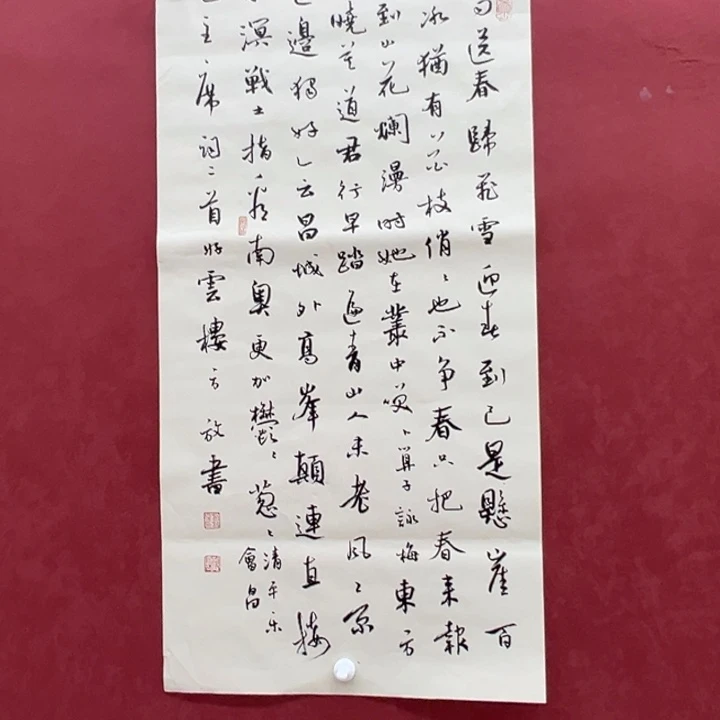 送春歸飛雪迎春到已是懸崖百
冰猶有花枝俏〻也不争春只把春来報
到山花爛漫时她在叢中笑卜算子詠梅東方
曉莫道君行早踏遍青山人未老風〻景
邊獨好会昌城外高峯顛連直接
溟戰士指看南奥更加鬱〻葱〻清平乐會昌
主席詞二首於雲樓方放書